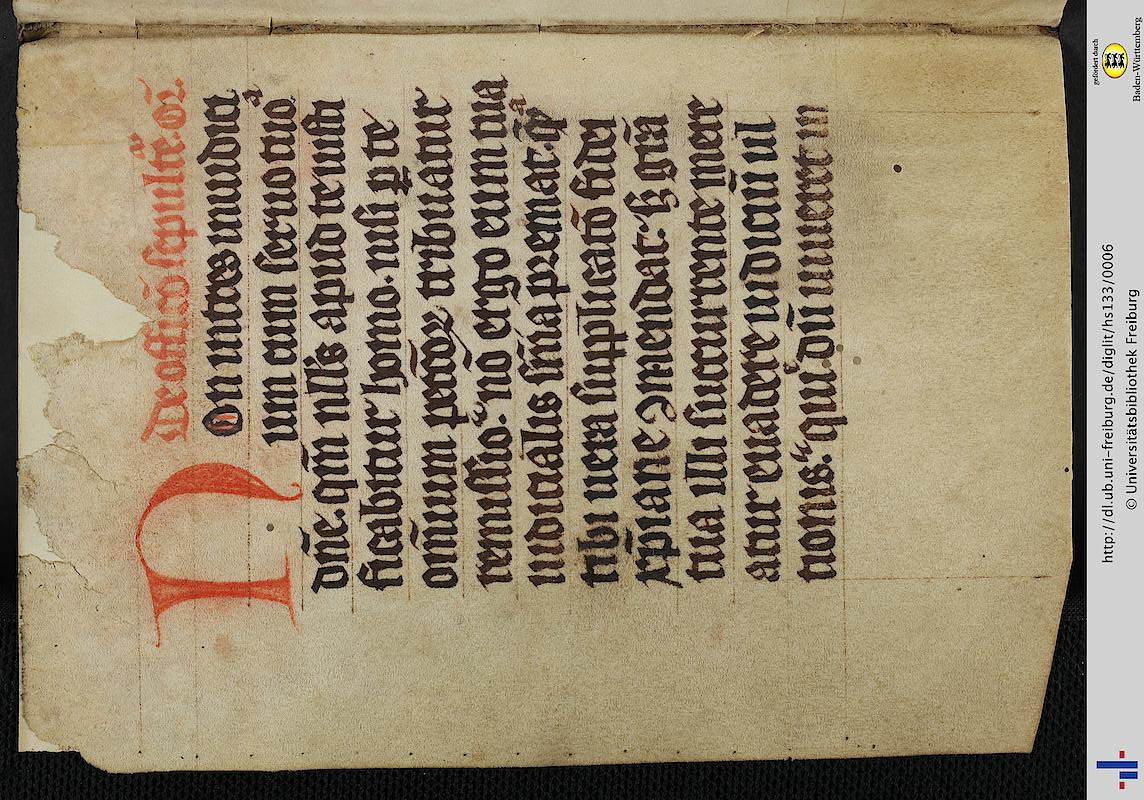 De officio sepulture. or̄.
Non intres in iudici
um cum seruo tuo
dn̄e. qm̄ nllꝰ apud te iusti
ficabitur homo. nisi ꝑ te
om̄ium pecc̄oꝝ tribuatur
remissio. nō ergo eum tua
iudicialis snīa premat. qͣ
tibi uera supplicatō fidei
xp̄iane ɔmendat. sꝫ gr̄a
tua illi succurrente mere
atur euadere iudiciū ul
tionis. qui dū uiueret in
gefördert durch
Baden-Württemberg
http://dl.ub.uni-freiburg.de/diglit/hs133/0006
© Universitätsbibliothek Freiburg